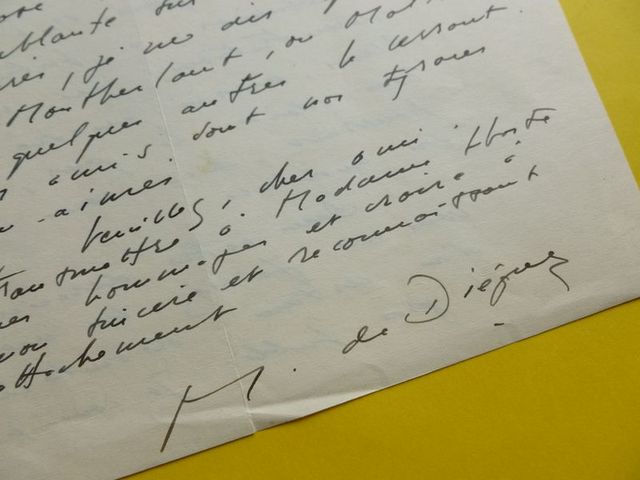 blante sur
, je ne dis
Montherlant, ou
quelques autres le seront.
amis dont nos tyrans
aimés
Veuillez, cher ami
transmettre à Madame Hoste
mes hommages et croire à
mon sincère et reconnaissant
attachement
M. de Diéguez